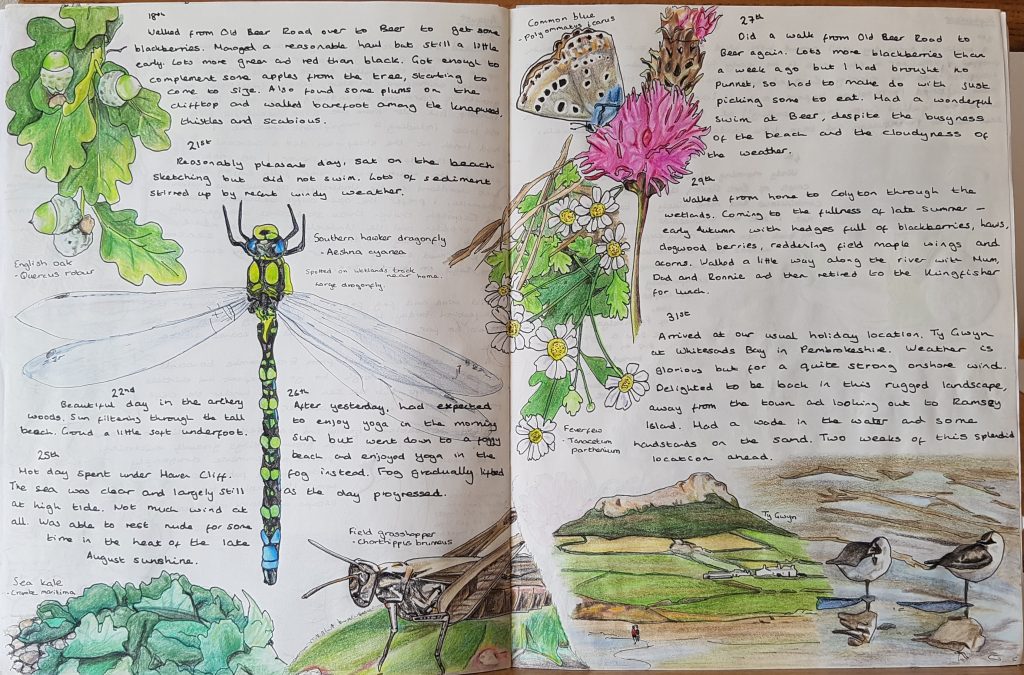 18th
Walked from Old Beer Road over to Beer to get some
blackberries. Managed a reasonable haul but still a little
early. Lots more green and red than black. Got enough to
complement some apples from the tree, starting to
come to size. Also found some plums on the
clifftop and walked barefoot among the knapweed,
thistles and scabious.
21st
Reasonably pleasant day, sat on the beach
sketching but did not swim. Lots of sediment
stirred up by recent windy weather.
English oak
- Quercus robur
Southern hawker dragonfly
- Aeshna cyanea
Spotted on wetlands track
near home.
Large dragonfly.
22nd
Beautiful day in the archery
woods. Sun filtering through the tall
beech. Ground a little soft underfoot.
25th
Hot day spent under Haven Cliff.
The sea was clear and largely still
at high tide. Not much wind at
all. Was able to rest nude for some
time in the heat of the late
August sunshine.
26th
After yesterday, had expected
to enjoy yoga in the morning
sun but went down to a foggy
beach and enjoyed yoga in the
fog instead. Fog gradually lifted
as the day progressed.
Sea kale
- Crambe maritima
Field grasshopper
- Chorthippus brunneus
Common blue
- Polyommatus icarus
27th
Did a walk from Old Beer Road to
Beer again. Lots more blackberries than
a week ago but I had brought no
punnet, so had to make do with just
picking some to eat. Had a wonderful
swim at Beer, despite the busyness
of the beach and the cloudyness of
the weather.
29th
Walked from home to Colyton through the
wetlands. Coming to the fullness of late summer –
early autumn with hedges full of blackberries, haws,
dogwood berries, reddening field maple wings and
acorns. Walked a little way along the river with Mum,
Dad and Ronnie and then retired to the Kingfisher
for lunch.
31st
Arrived at our usual holiday location, Ty Gwyn
at Whitesands Bay in Pembrokeshire. Weather is
glorious but for a quite strong onshore wind.
Delighted to be back in this rugged landscape,
away from the town and looking out to Ramsey
Island. Had a wade in the water and some
handstands on the sand. Two weeks of this splendid
location ahead.
Feverfew
- Tanacetum
parthenium
Ty Gwyn